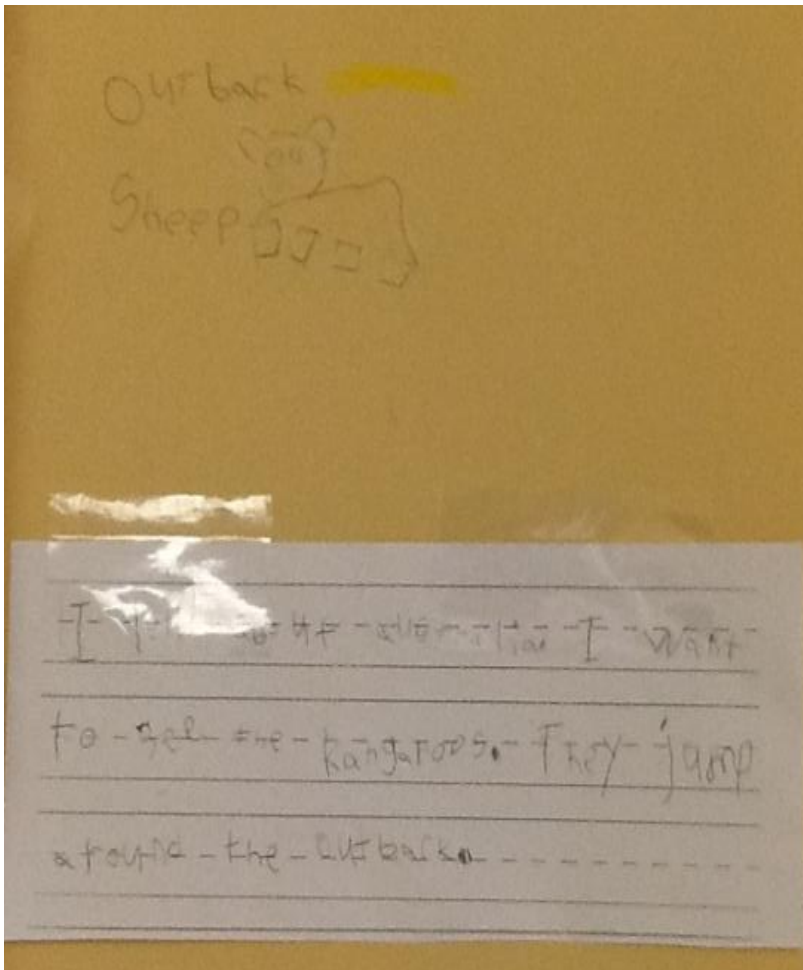 Outback
Sheep
I want
to see the kangaroos. They jump
around the outback.